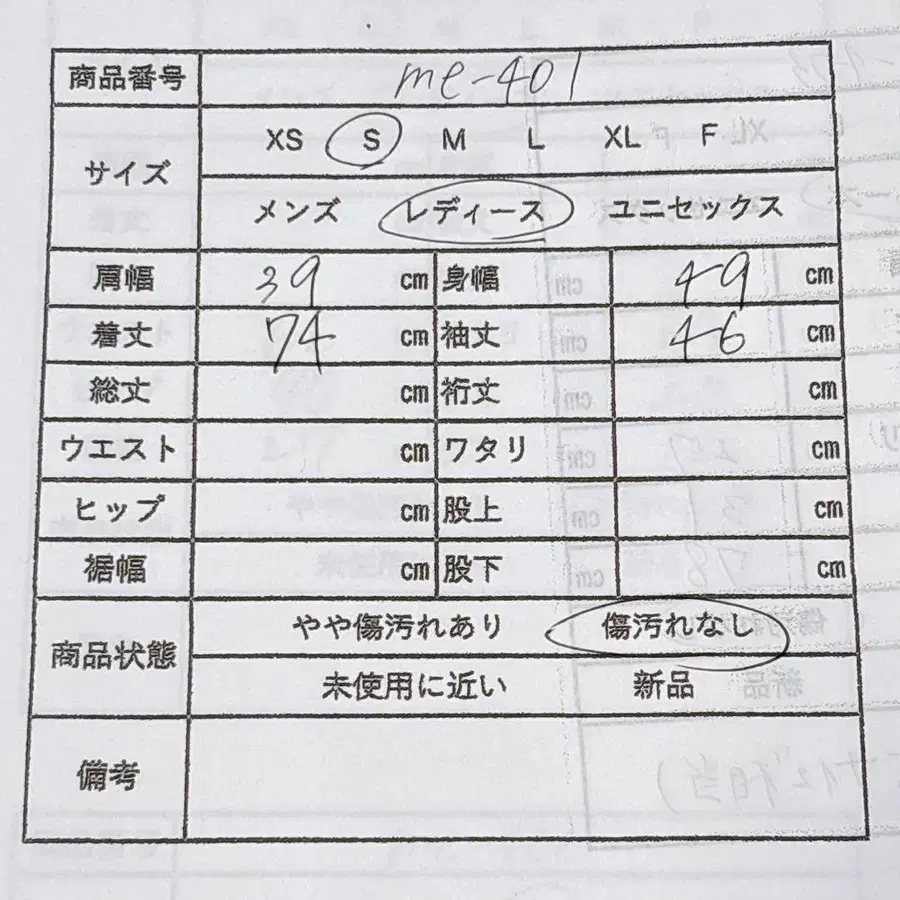 商品番号 me-401
サイズ XS S M L XL F
メンズ レディース ユニセックス
肩幅 39 cm 身幅 49 cm
着丈 74 cm 袖丈 46 cm
総丈 cm 裄丈 cm
ウエスト cm ワタリ cm
ヒップ cm 股上 cm
裾幅 cm 股下 cm
商品状態 やや傷汚れあり 傷汚れなし
未使用に近い 新品
備考